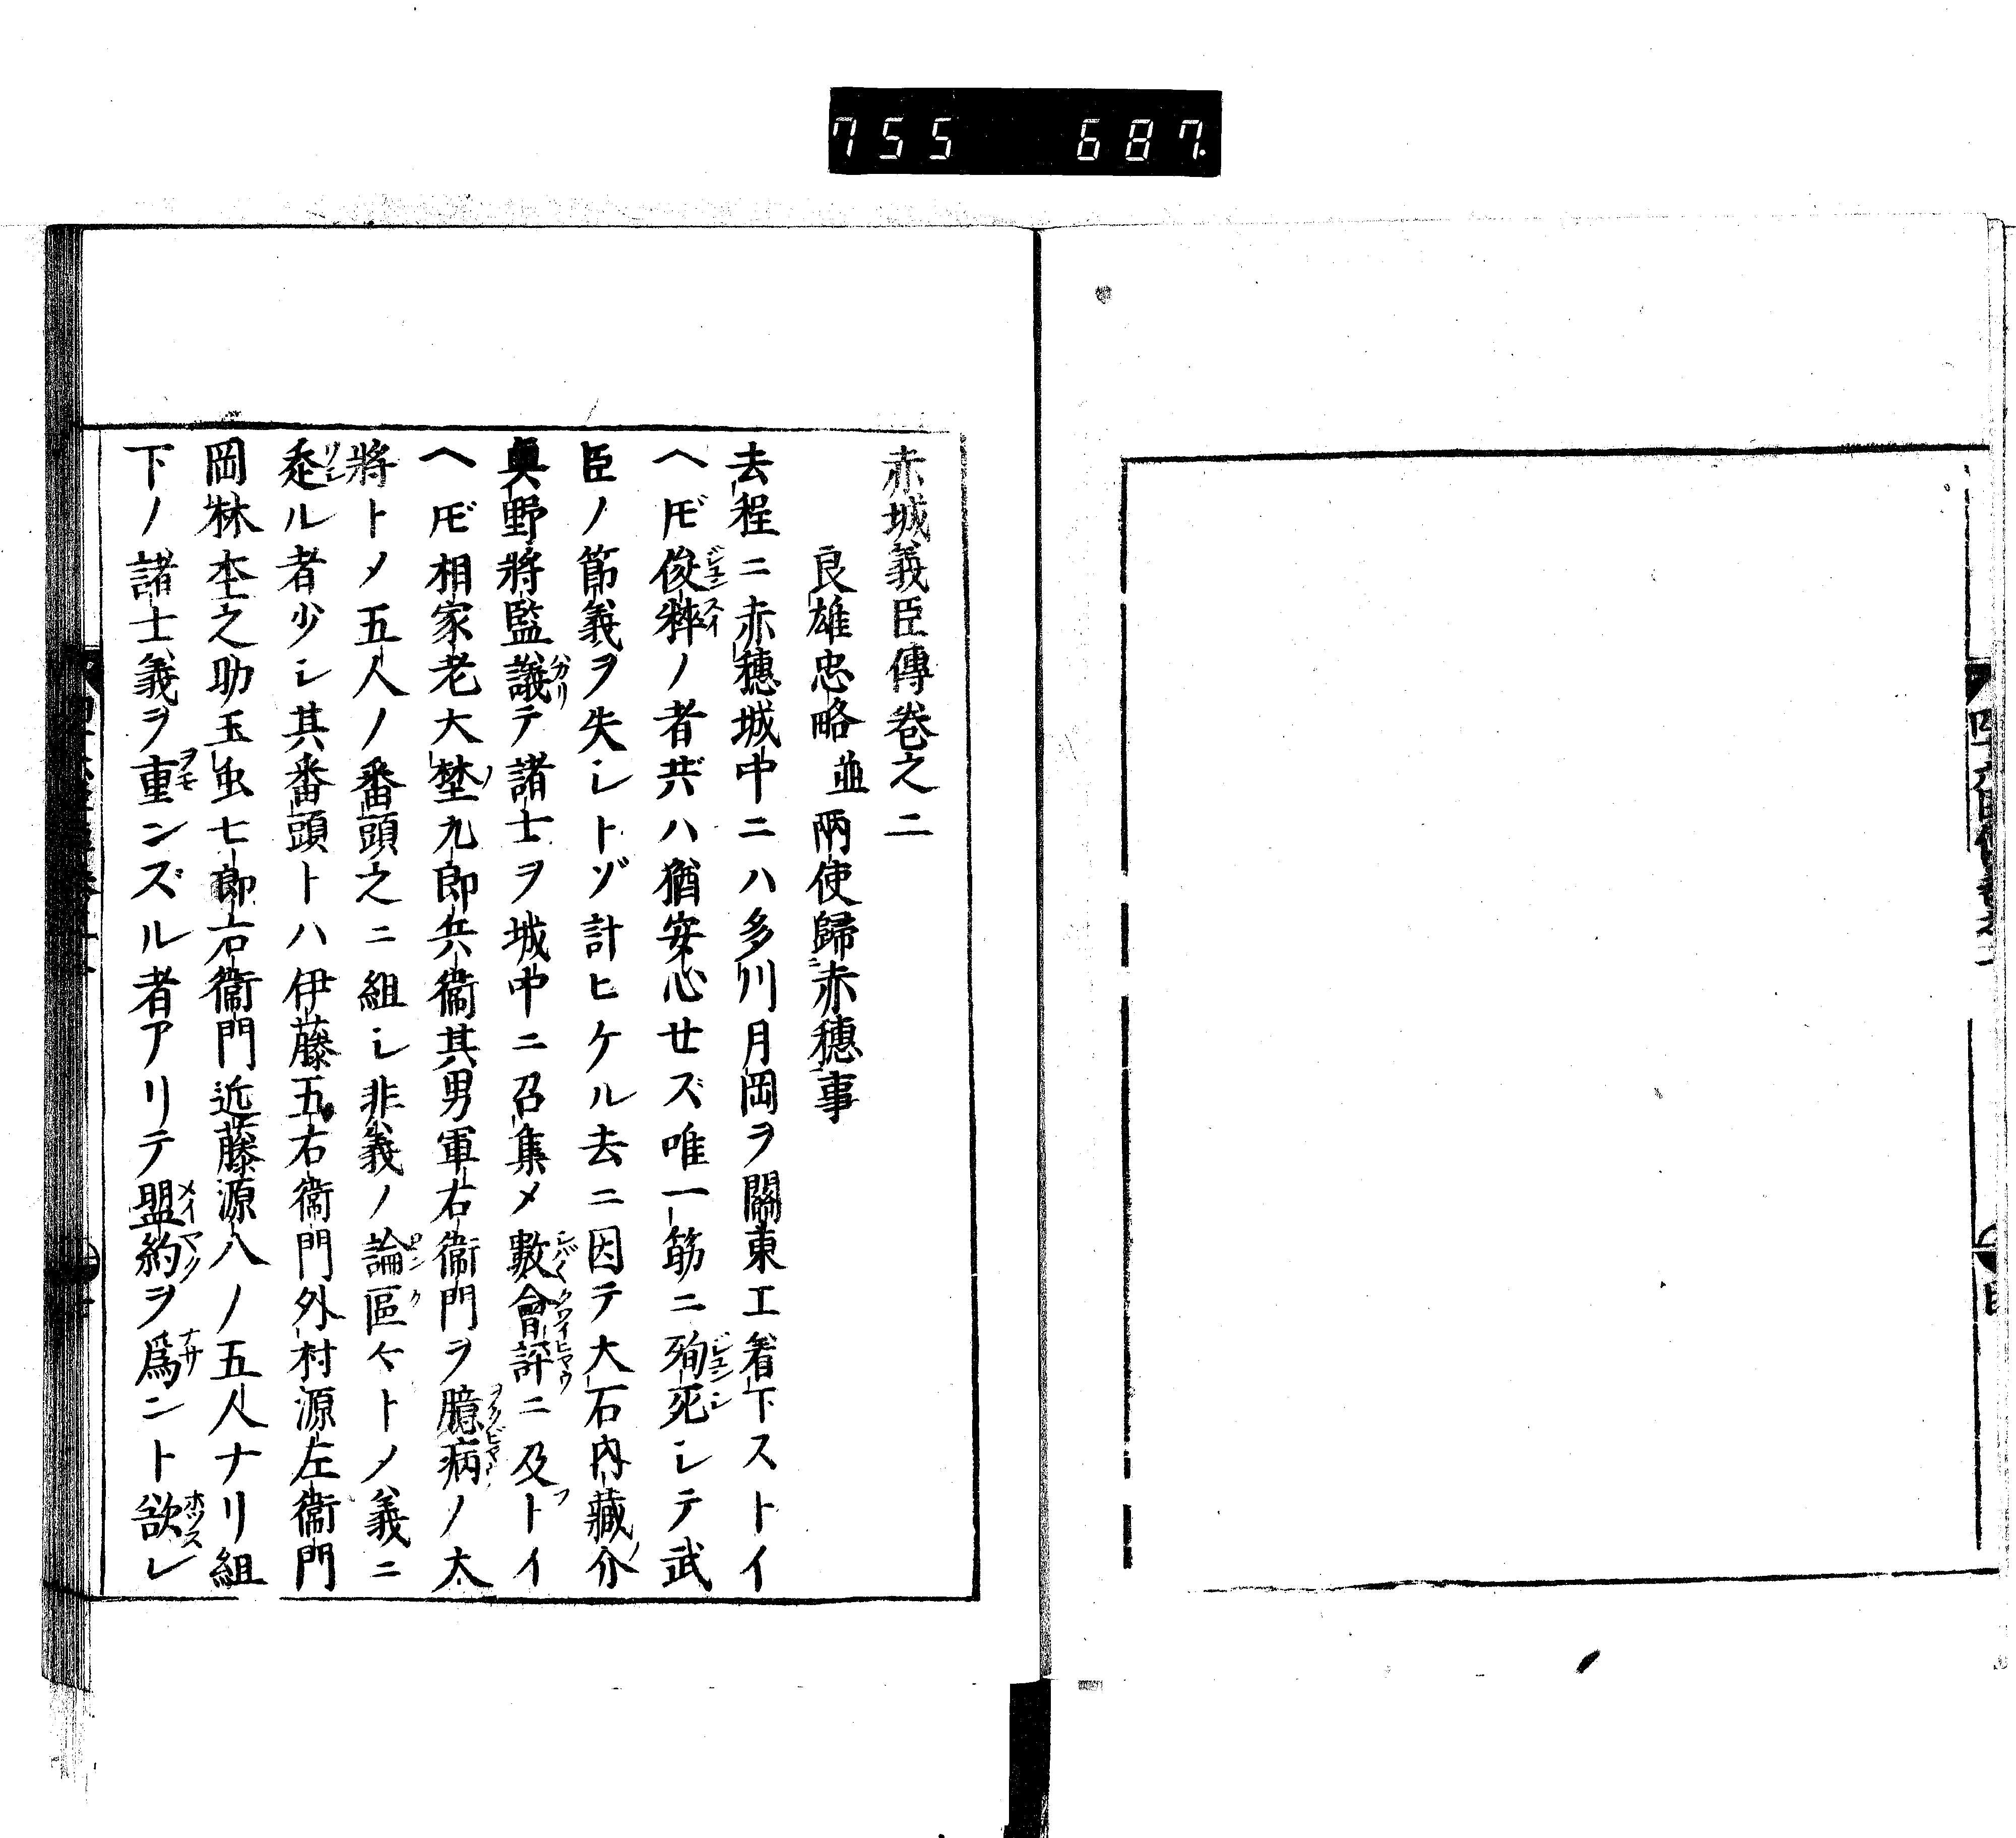 755 687
赤城義臣傳巻之二
良雄忠略並兩使歸赤穗事
去程ニ赤穗城中ニハ多川月岡ヲ關東エ着下ストイ
ヘ𪜈俊粹ノ者共ハ猶安心セズ唯一筋ニ殉死シテ武
臣ノ節義ヲ失シトゾ計ヒケル去ニ因テ大石内藏介
奥野將監議テ諸士ヲ城中ニ召集メ數會評ニ及トイ
ヘ𪜈相家老大埜九郎兵衞其男軍右衞門ヲ臆病ノ太
將トメ五人ノ番頭之ニ組シ非義ノ論區々トメ義ニ
ル者少シ其番頭トハ伊藤五右衞門外村源左衞門
岡林杢之助玉虫七郎右衞門近藤源八ノ五人ナリ組
下ノ諸士義ヲ重ンズル者アリテ盟約ヲ爲ント欲レ